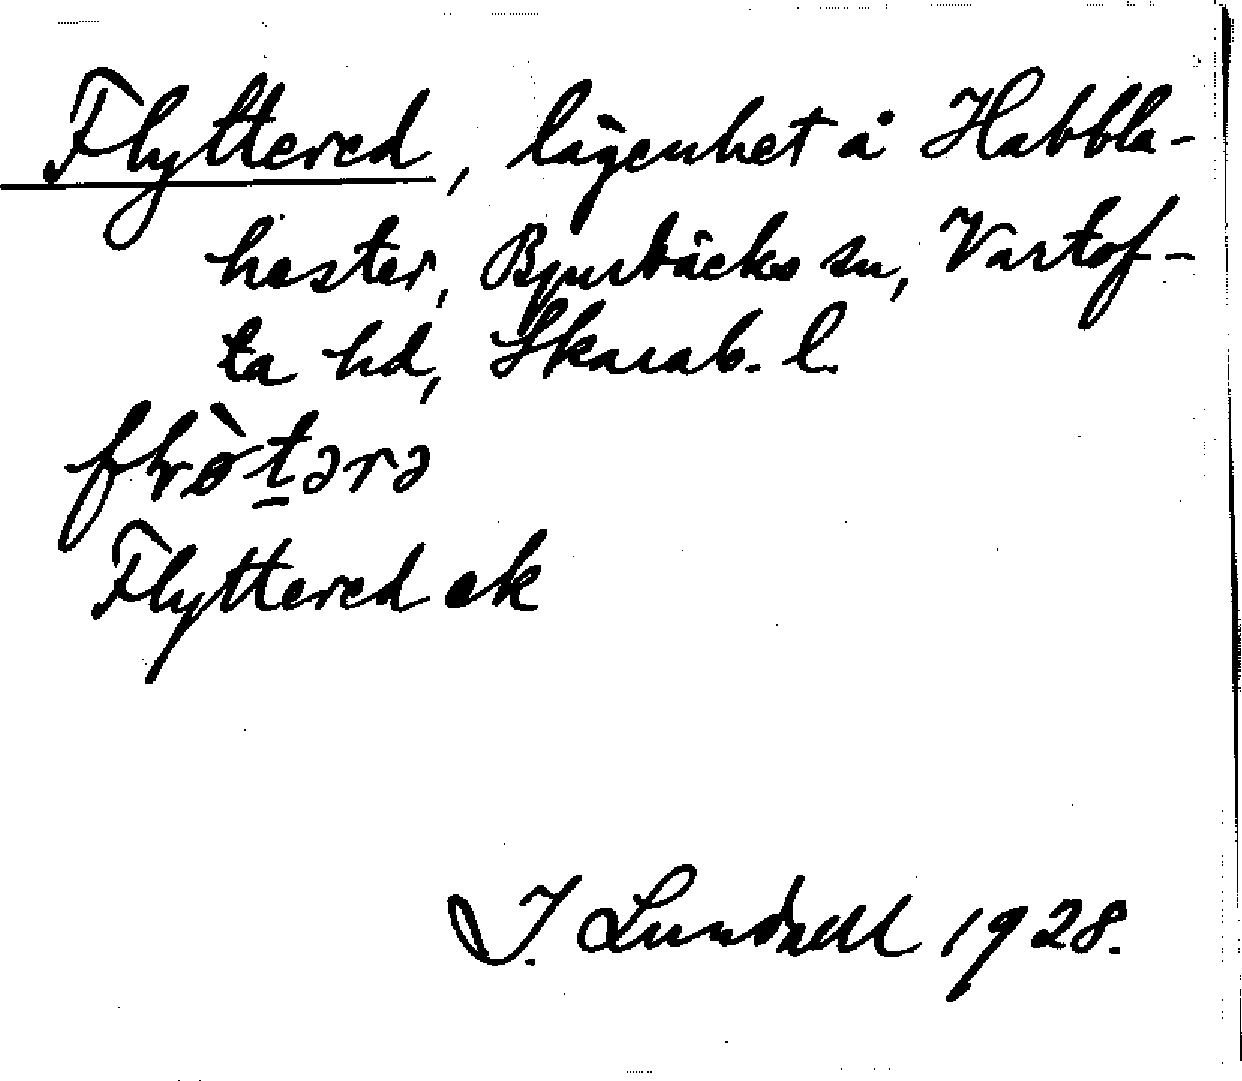 Flyttered, lägenhet å Habbla-
hester, Bjurbäcks sn, Vartof-
ta hd, Skarab. l.
Flyttered ek
J. Lundahl 1928.